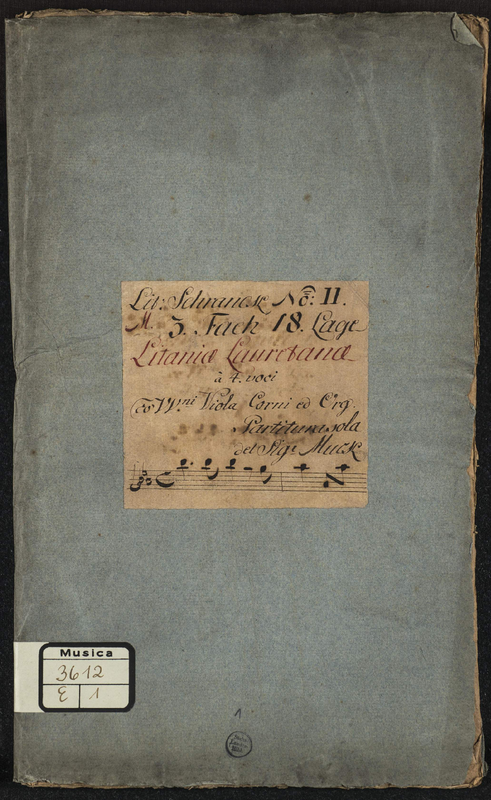 Lit: Schranck No: 11.
M. 3. Fach 18. Lage
Litaniæ Lauretanæ
à 4. voci
co VV.ni Viola Corni ed Org.
Partitura sola
del Sig.e Muck
Musica
3612
E 1
1